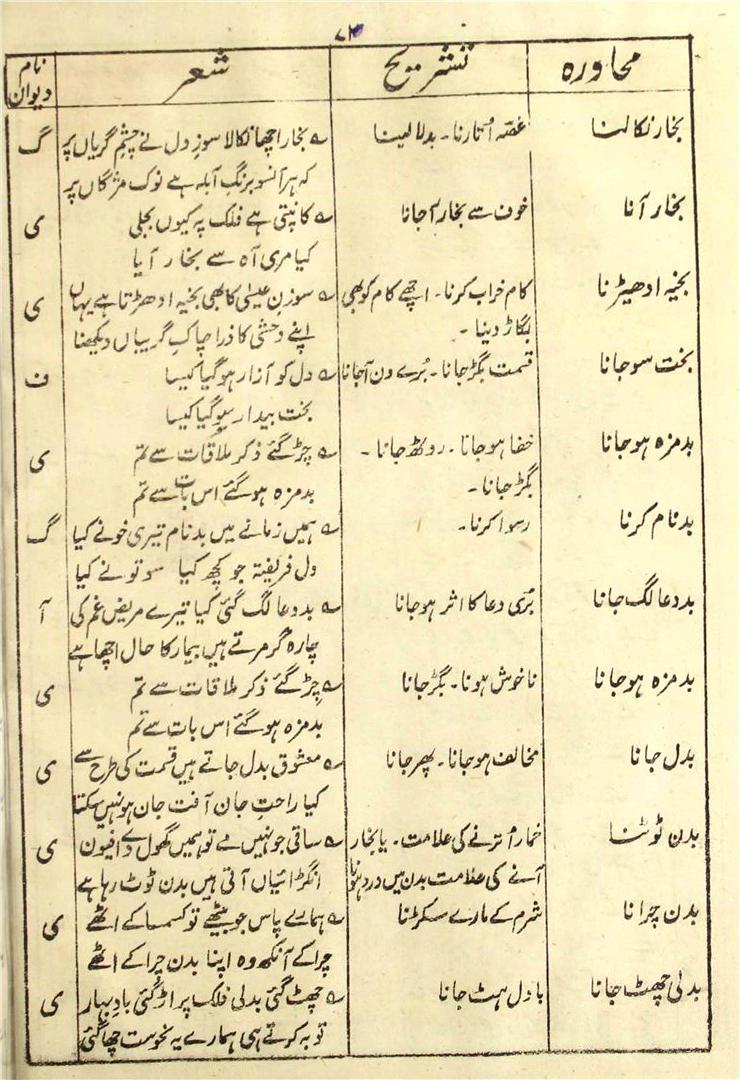 ۷۴
محاورہ تشریح شعر نام دیوان
بخار نکالنا غصہ اُتارنا۔ بدلا لینا ؎ بخار اچھا نکالا سوزِ دل نے چشمِ گریاں پر گ
کہ ہر آنسو برنگِ آبلہ ہے نوک مژگاں پر
بخار آنا خوف سے بخار آجانا ؎ کانپتی ہے فلک پہ کیوں بجلی ی
کیا مری آہ سے بخار آیا
بخیہ ادھیڑنا کام خراب کرنا۔ اچھے کام کو بھی ؎ سوزنِ عیسیٰ کا بھی بخیہ ادھڑتا ہے یہاں ی
بگاڑ دینا۔ اپنے وحشی کا ذرا چاکِ گریباں دیکھنا
بخت سو جانا قسمت بگڑ جانا۔ بُرے دن آجانا ؎ دل کو آزار ہو گیا کیسا ف
بخت بیدار سو گیا کیسا
بدمزہ ہو جانا خفا ہو جانا۔ روٹھ جانا۔ ؎ چڑ گئے ذکر ملاقات سے تم ی
بگڑ جانا۔ بدمزہ ہو گئے اس بات سے تم
بدنام کرنا رسوا کرنا۔ ؎ ہمیں زمانے میں بدنام تیری خو نے کیا گ
دل فریفتہ جو کچھ کیا سو تو نے کیا
بددعا لگ جانا بُری دعا کا اثر ہو جانا ؎ بددعا لگ گئی کیا تیرے مریضِ غم کی آ
چارہ گر مرتے ہیں بیمار کا حال اچھا ہے
بدمزہ ہو جانا ناخوش ہونا۔ بگڑ جانا ؎ چِڑ گئے ذکر ملاقات سے تم ی
بدمزہ ہو گئے اس بات سے تم
بدل جانا مخالف ہو جانا۔ پھر جانا ؎ معشوق بدل جاتے ہیں قسمت کی طرح سے ی
کیا راحتِ جان آفت جان ہو نہیں سکتا
بدن ٹوٹنا خمار اُترنے کی علامت۔ یا بخار ؎ ساقی جو نہیں مے تو ہمیں گھول دے افیون ی
آنے کی علامت بدن میں درد ہونا انگڑائیاں آتی ہیں بدن ٹوٹ رہا ہے
بدن چرانا شرم کے مارے سکڑنا ؎ ہمارے پاس جو بیٹھے تو کسمسا کے اٹھے ی
چرا کے آنکھ وہ اپنا بدن چرا کے اٹھے
بدلی چھٹ جانا بادل ہٹ جانا ؎ چھٹ گئی بدلی فلک پر اڑ گئی بادِ بہار ی
توبہ کرتے ہی ہمارے یہ نحوست چھا گئی